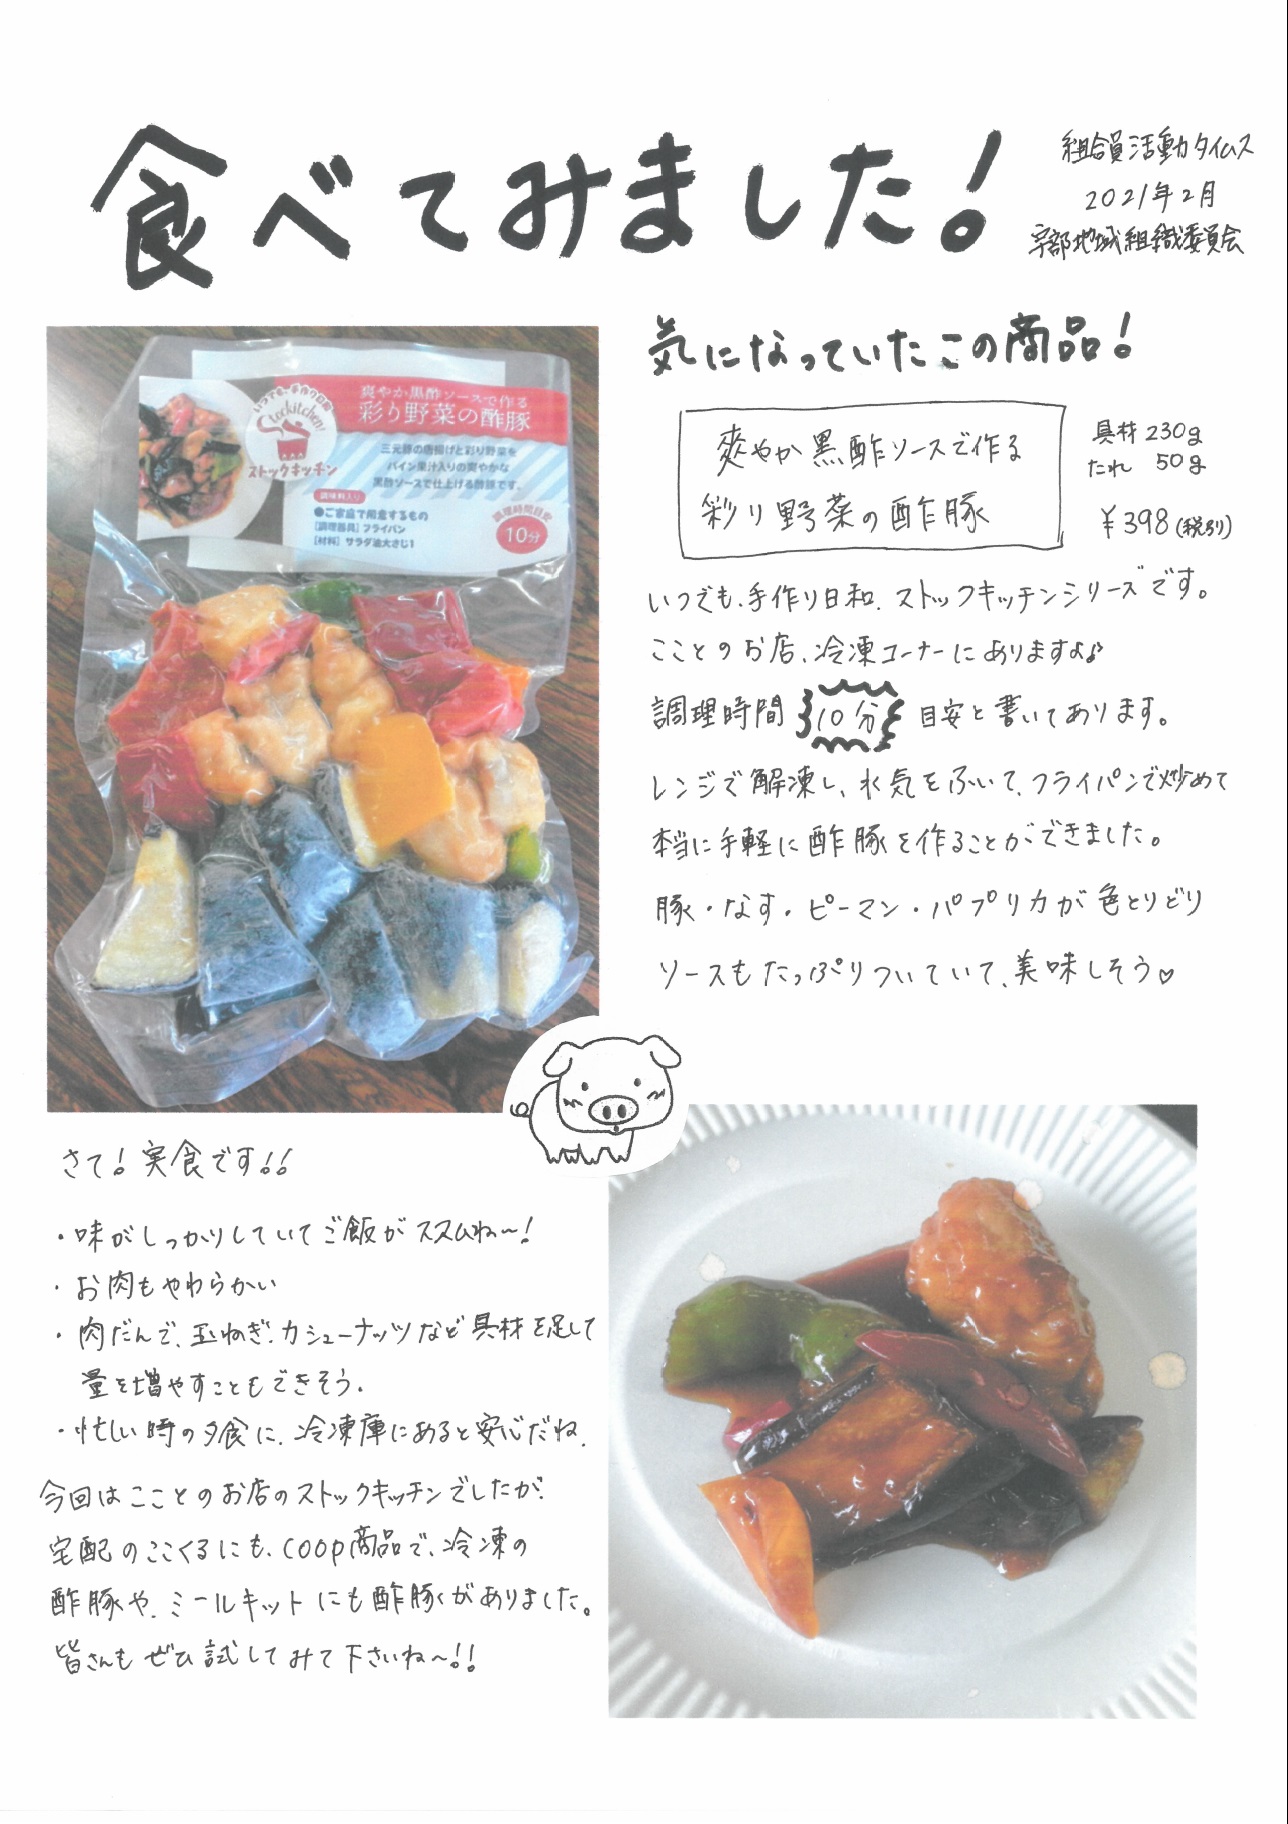 食べてみました！
組合員活動タイムス
2021年2月
宇部地域組織委員会
気になっていたこの商品！
爽やか黒酢ソースで作る
彩り野菜の酢豚
具材 230g
たれ 50g
¥398(税別)
いつでも、手作り日和、ストックキッチンシリーズです。
こことのお店、冷凍コーナーにありますよ♪
調理時間 10分 目安と書いてあります。
レンジで解凍し、水気をふいて、フライパンで炒めて
本当に手軽に酢豚を作ることができました。
豚・なす・ピーマン・パプリカが色とりどり
ソースもたっぷりついていて、美味しそう♡
いつでも、手作り日和
Stockitchen!
ストックキッチン
爽やか黒酢ソースで作る
彩り野菜の酢豚
三元豚の唐揚げと彩り野菜を
パイン果汁入りの爽やかな
黒酢ソースで仕上げる酢豚です。
調味料入り
●ご家庭で用意するもの
[調理器具] フライパン
[材料] サラダ油大さじ1
調理時間目安
10分
さて！実食です!!
・味がしっかりしていてご飯がススムね〜！
・お肉もやわらかい
・肉だんで、玉ねぎ、カシューナッツなど具材を足して
量を増やすこともできそう。
・忙しい時の夕食に、冷凍庫にあると安心だね。
今回はこことのお店のストックキッチンでしたが、
宅配のここくるにも、coop商品で、冷凍の
酢豚や、ミールキットにも酢豚がありました。
皆さんもぜひ試してみて下さいね〜!!